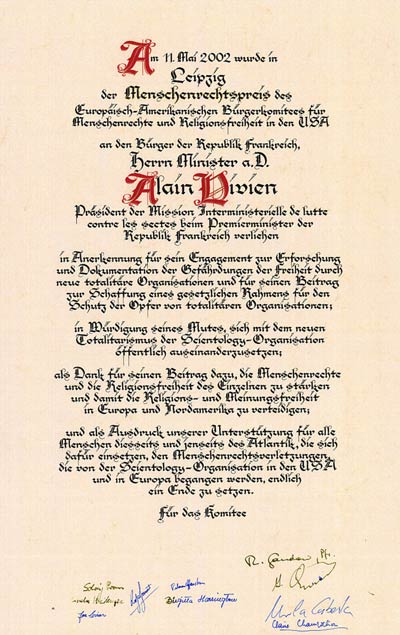 Am 11. Mai 2002 wurde in
Leipzig
der Menschenrechtspreis des
Europäisch-Amerikanischen Bürgerkomitees für
Menschenrechte und Religionsfreiheit in den USA
an den Bürger der Republik Frankreich,
Herrn Minister a.D.
Alain Vivien
Präsident der Mission Interministerielle de lutte
contre les sectes beim Premierminister der
Republik Frankreich verliehen
in Anerkennung für sein Engagement zur Erforschung
und Dokumentation der Gefährdungen der Freiheit durch
neue totalitäre Organisationen und für seinen Beitrag
zur Schaffung eines gesetzlichen Rahmens für den
Schutz der Opfer von totalitären Organisationen;
in Würdigung seines Mutes, sich mit dem neuen
Totalitarismus der Scientology-Organisation
öffentlich auseinanderzusetzen;
als Dank für seinen Beitrag dazu, die Menschenrechte
und die Religionsfreiheit des Einzelnen zu stärken
und damit die Religions- und Meinungsfreiheit
in Europa und Nordamerika zu verteidigen;
und als Ausdruck unserer Unterstützung für alle
Menschen diesseits und jenseits des Atlantik, die sich
dafür einsetzen, den Menschenrechtsverletzungen,
die von der Scientology-Organisation in den USA
und in Europa begangen werden, endlich
ein Ende zu setzen.
Für das Komitee